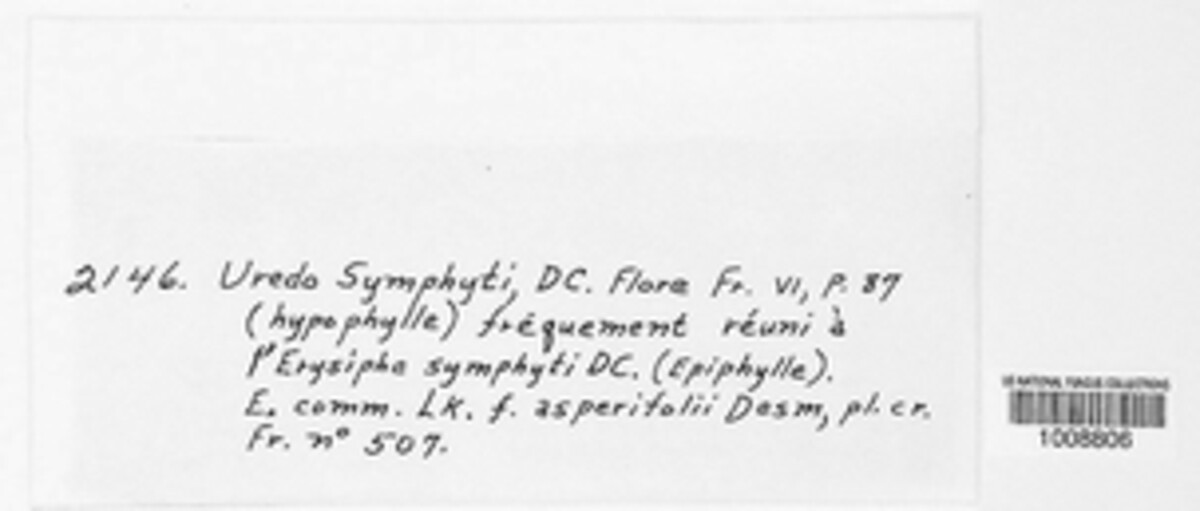 2146. Uredo Symphyti, DC. Flore Fr. VI, P. 87
(hypophylle) fréquement réuni à
l'Erysiphe symphyti DC. (Epiphylle).
E. comm. Lk. f. asperifolii Desm, pl. cr.
Fr. nº 507.
US NATIONAL FUNGUS COLLECTIONS
1008806